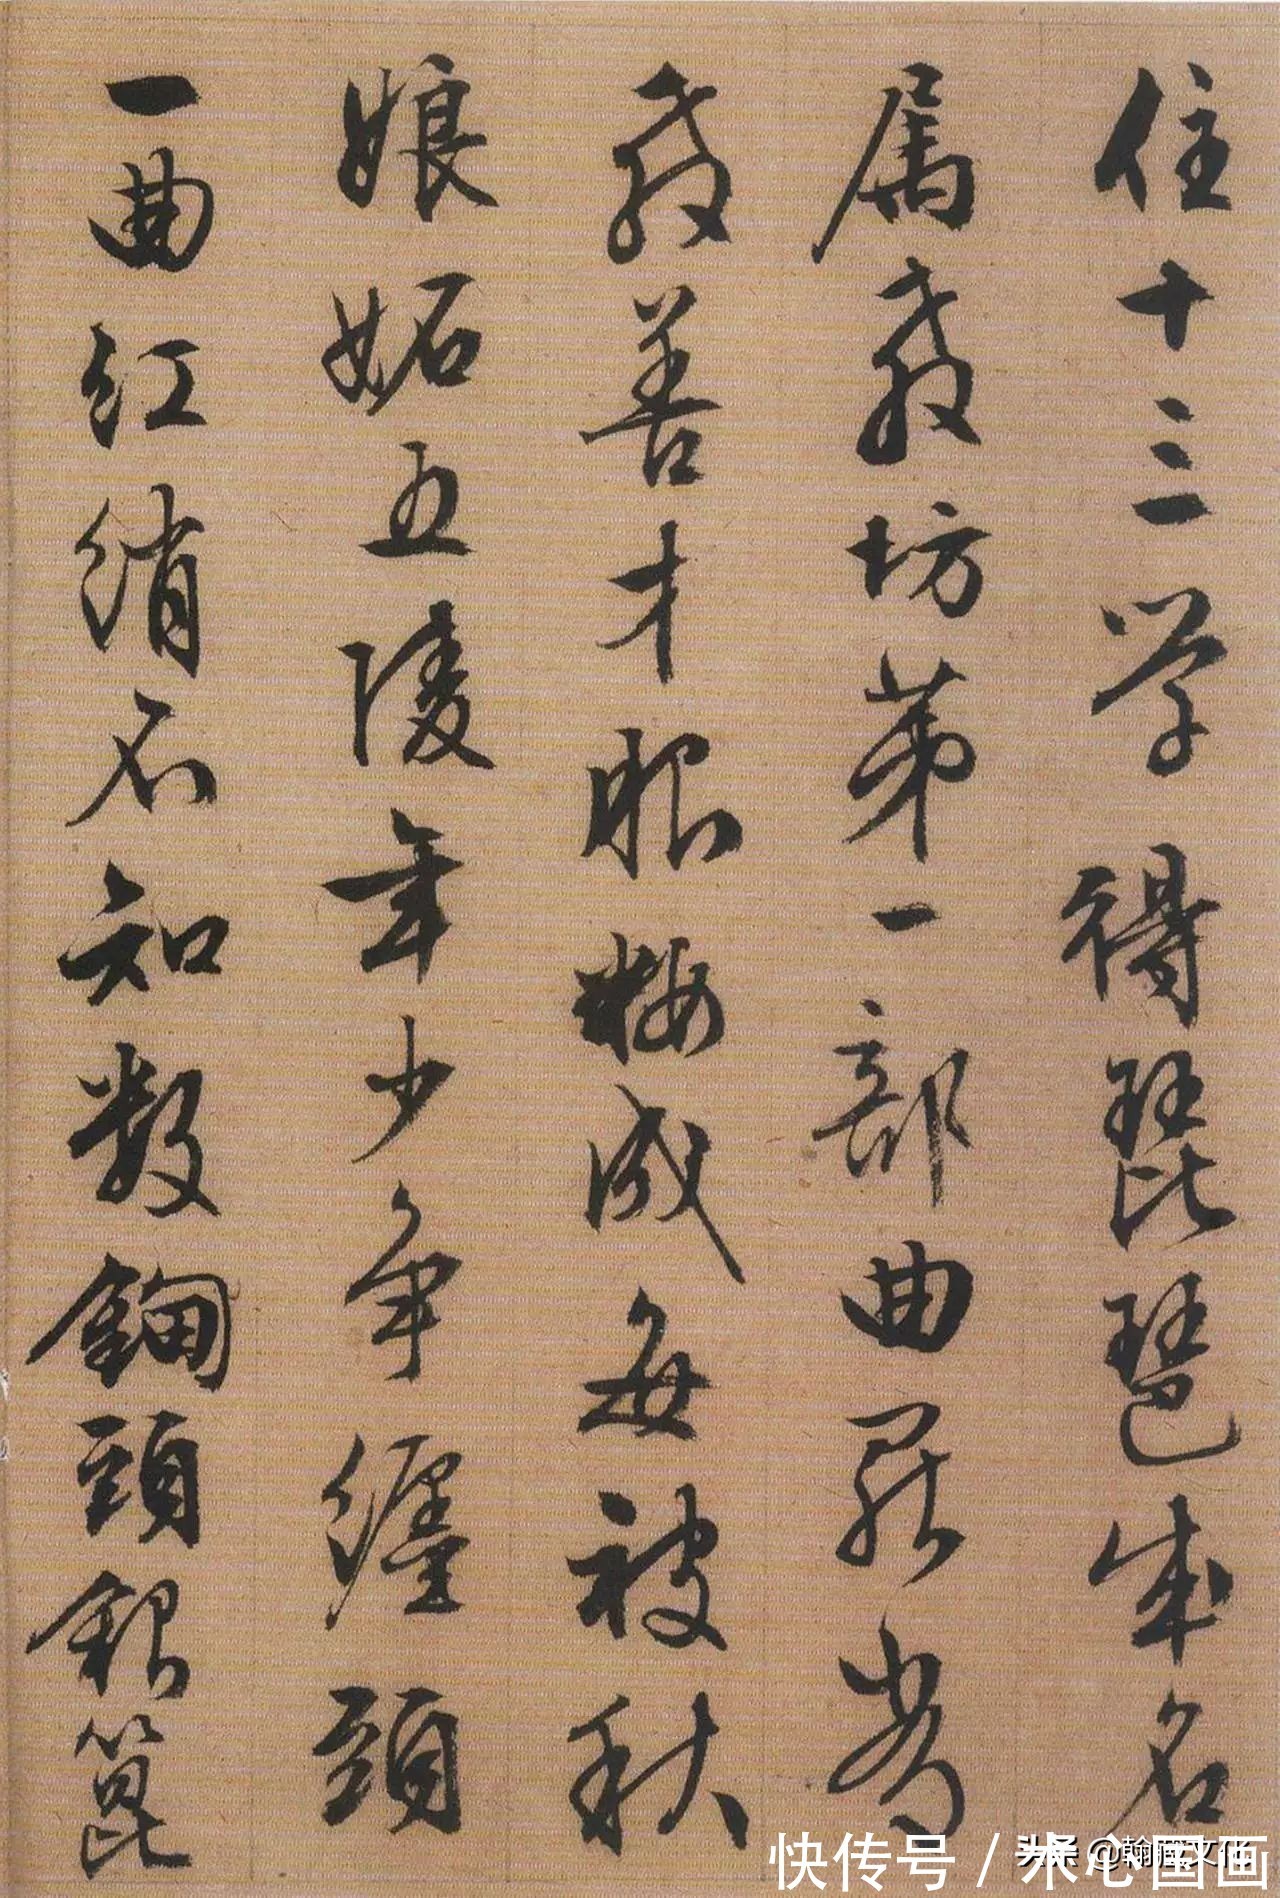 住十三学得琵琶成名
属教坊第一部曲罷常
教善才服粧成每被秋
娘妬五陵年少争纏頭
一曲紅綃不知数鈿頭銀篦
快传号/水心国画
头条 @翰墨文化